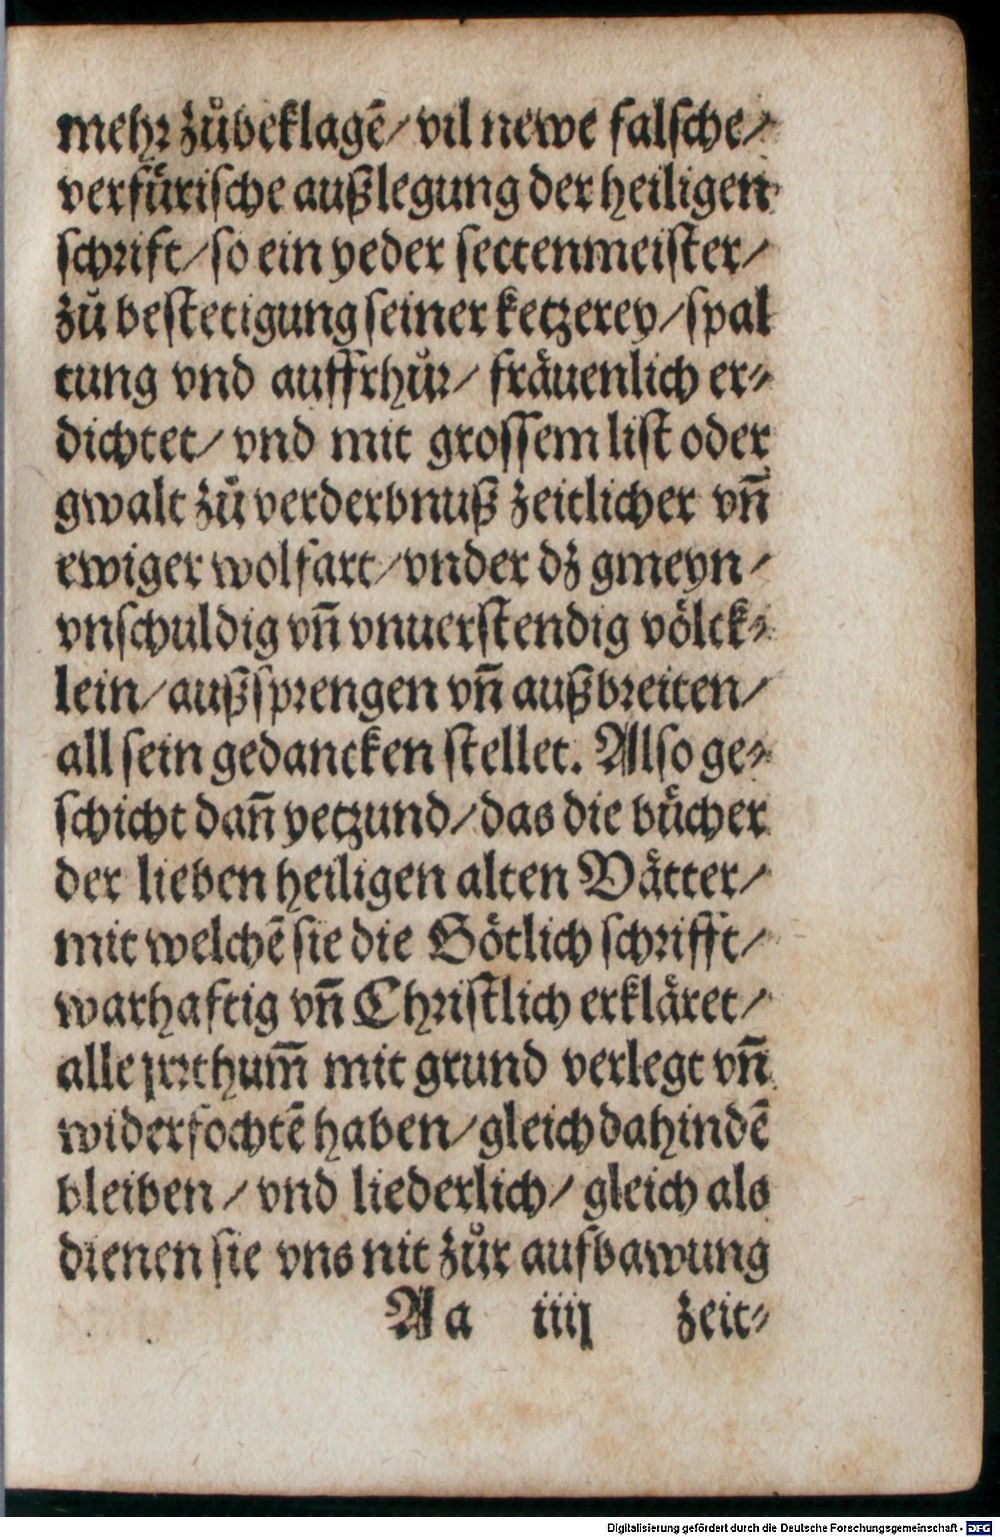 mehr zůbeklagē/ vil newe falsche/
verfürische außlegung der heiligen
schrift/ so ein yeder sectenmeister/
zů bestetigung seiner ketzerey/ spal
tung vnd auffrhůr/ fräuenlich er⸗
dichtet/ vnd mit grossem list oder
gwalt zů verderbnuß zeitlicher vñ
ewiger wolfart/ vnder dz gmeyn/
vnschuldig vñ vnuerstendig völck⸗
lein/ außsprengen vñ außbreiten/
all sein gedancken stellet. Also ge⸗
schicht dañ yetzund/ das die bücher
der lieben heiligen alten Vätter/
mit welchē sie die Götlich schrifft/
warhaftig vñ Christlich erkläret/
alle jrrthum̃ mit grund verlegt vñ
widerfochtē haben/ gleich dahindē
bleiben/ vnd liederlich/ gleich als
dienen sie vns nit zůr aufbawung
Aa iiij zeit⸗
Digitalisierung gefördert durch die Deutsche Forschungsgemeinschaft - DFG